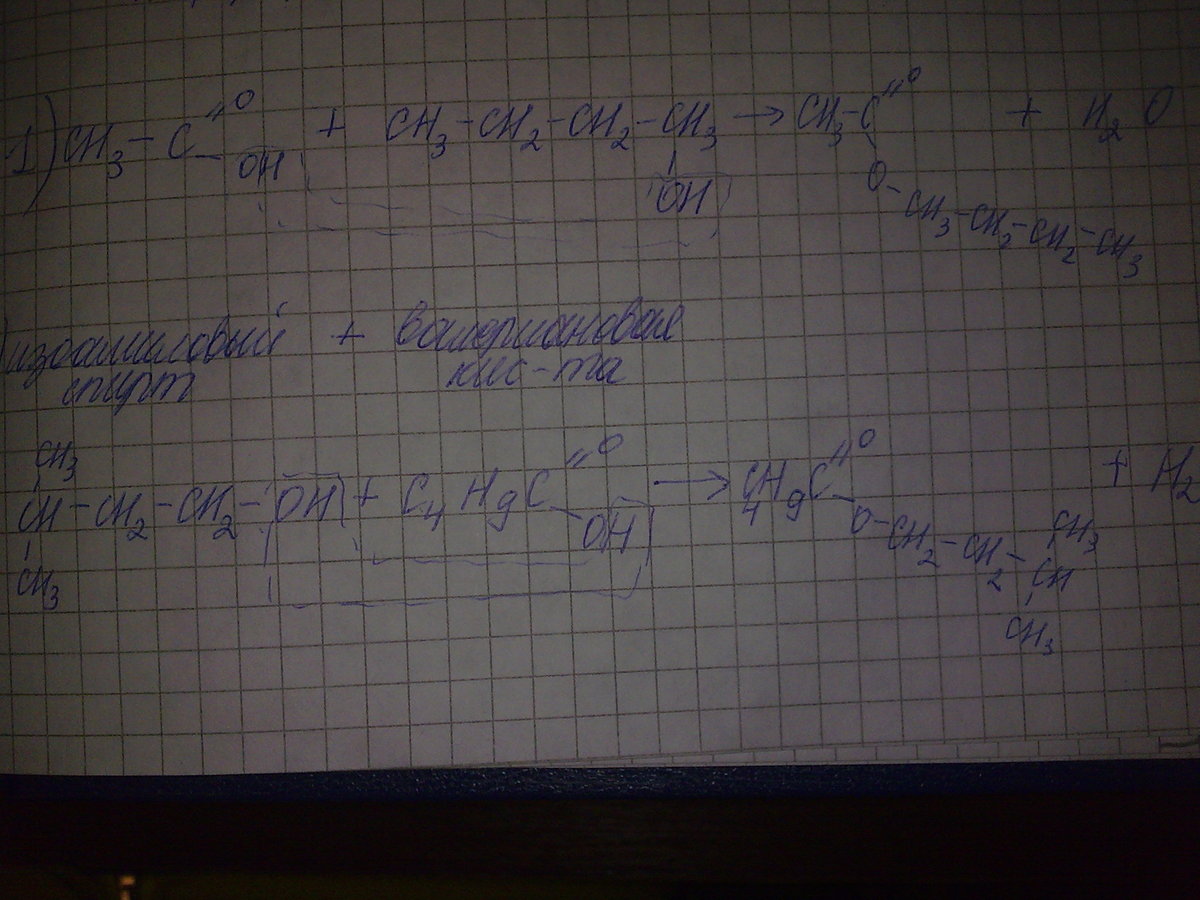 1) CH3 - C =O + CH3 - CH2 - CH2 - CH3 → CH3 - C =O + H2O
- OH
OH
O - CH3 - CH2 - CH2 - CH3
изоамиловый + валериановая
спирт кис-та
CH3
CH - CH2 - CH2 - OH + C4H9C =O → C4H9C =O + H2
- OH
O - CH2 - CH2 - CH
CH3
CH3
CH3